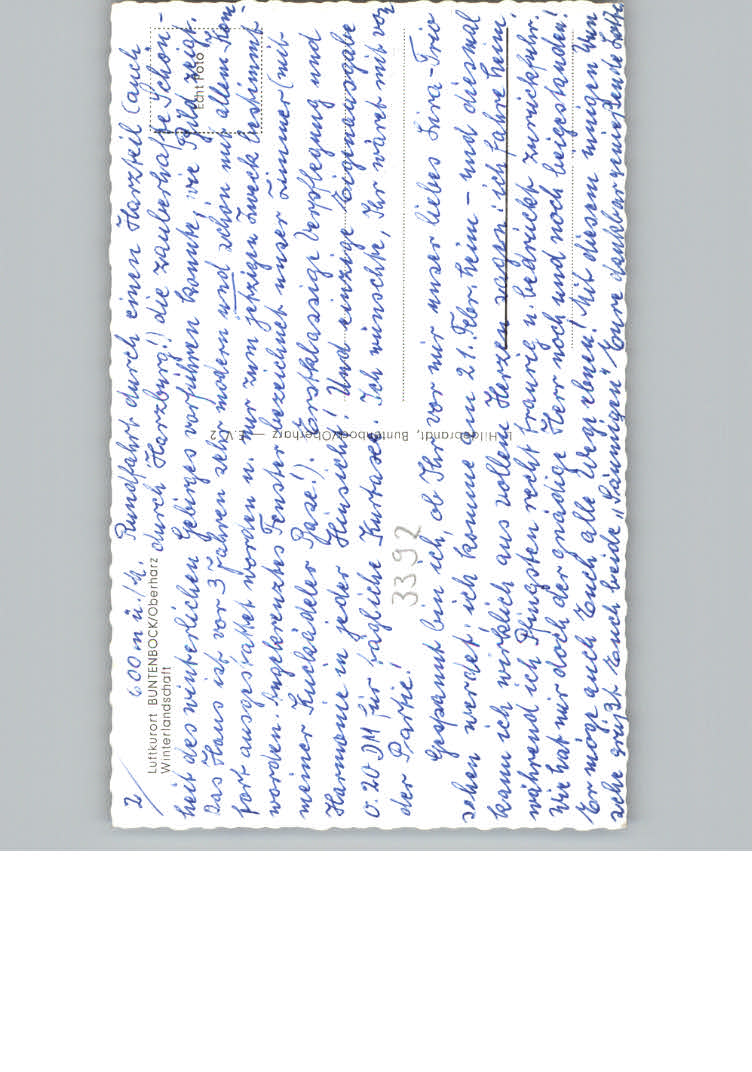 2/
600 m ü./M.
Luftkurort BUNTENBOCK/Oberharz
Winterlandschaft
Echt Foto
Rundfahrt durch einen Harzteil (auch
durch Harzburg!) die zauberhafte Schön-
heit des winterlichen Gebirges vorführen konnte, wie Bild zeigt.
Das Haus ist vor 3 Jahren sehr modern und schön mit allem Kom-
fort ausgestattet worden u. nur zum jetzigen Zweck bestimmt
worden. Angekreuztes Fenster bezeichnet unser Zimmer (mit
meiner Base!). Erstklassige Verpflegung und
Harmonie in jeder Hinsicht! Und einzige Eigenausgabe
0.20 DM für tägliche Kurtaxe. Ich wünschte, Ihr wäret mit von
der Partie!
3392
L. Hildebrandt, Buntenbock/Oberharz — E.V. 2
Gespannt bin ich, ob Ihr vor mir unser liebes Trio
sehen werdet: ich komme am 21. Febr. heim – und diesmal
kann ich wirklich aus vollem Herzen sagen: ich fahre heim,
während ich Pfingsten recht traurig u. bedrückt zurückfuhr.
Wie hat mir doch der gnädige Herr noch und noch beigestanden!
Er möge auch Euch alle Wege ebnen! Mit diesem innigen Wun-
sche grüßt Euch beide Eure dankbar